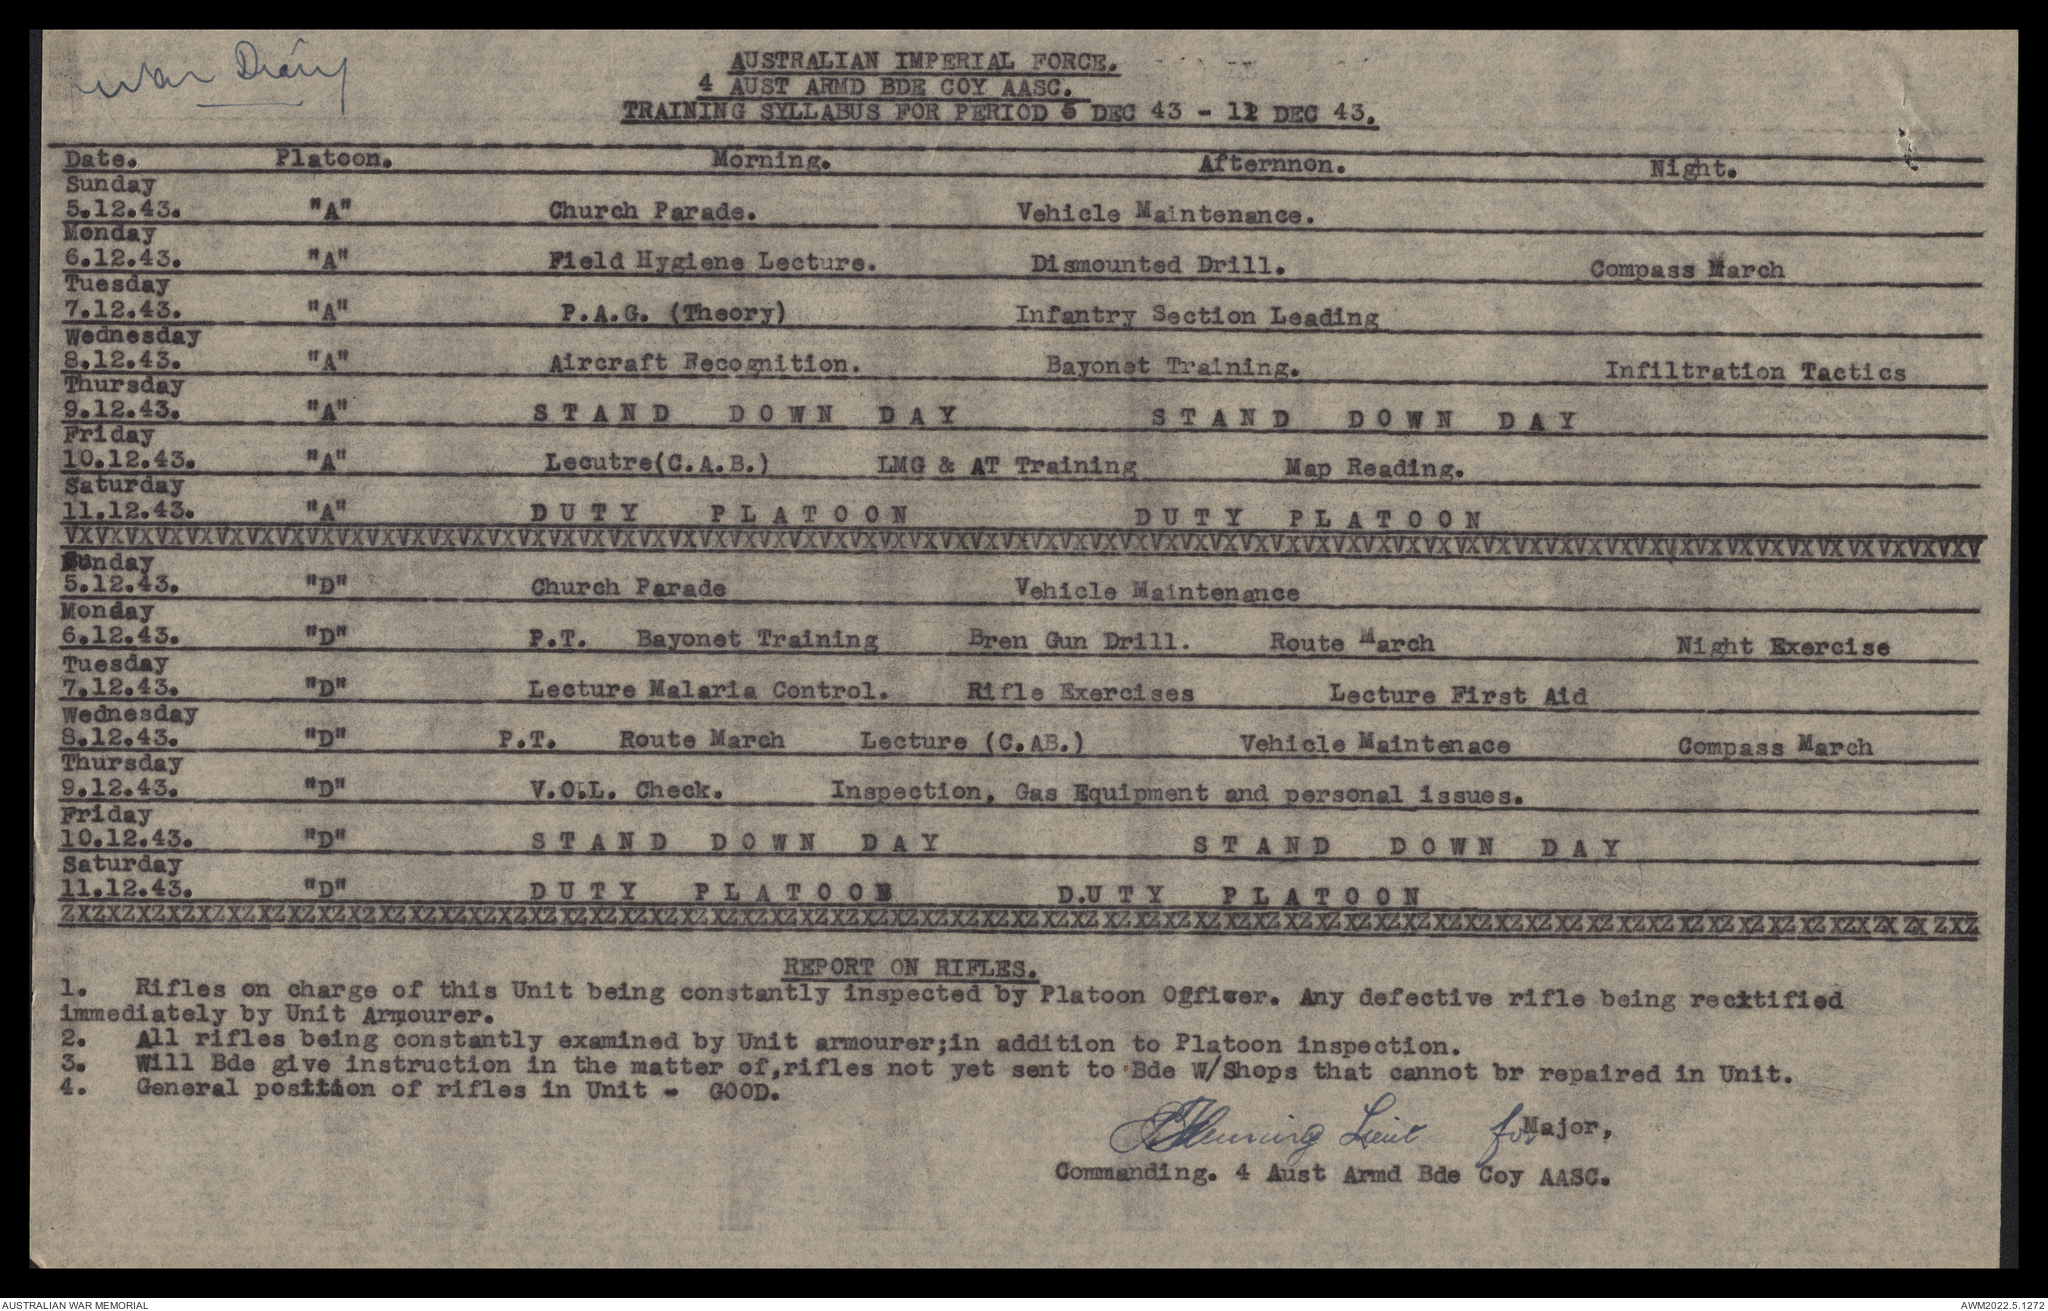 War Diary
AUSTRALIAN IMPERIAL FORCE.
4 AUST ARMD BDE COY AASC.
TRAINING SYLLABUS FOR PERIOD 5 DEC 43 - 11 DEC 43.
Date. Platoon. Morning. Afternnon. Night.
Sunday
5.12.43. "A" Church Parade. Vehicle Maintenance.
Monday
6.12.43. "A" Field Hygiene Lecture. Dismounted Drill. Compass March
Tuesday
7.12.43. "A" P.A.G. (Theory) Infantry Section Leading
Wednesday
8.12.43. "A" Aircraft Recognition. Bayonet Training. Infiltration Tactics
Thursday
9.12.43. "A" S T A N D D O W N D A Y S T A N D D O W N D A Y
Friday
10.12.43. "A" Lecutre(C.A.B.) LMG & AT Training Map Reading.
Saturday
11.12.43. "A" D U T Y P L A T O O N D U T Y P L A T O O N
Sunday
5.12.43. "D" Church Parade Vehicle Maintenance
Monday
6.12.43. "D" P.T. Bayonet Training Bren Gun Drill. Route March Night Exercise
Tuesday
7.12.43. "D" Lecture Malaria Control. Rifle Exercises Lecture First Aid
Wednesday
8.12.43. "D" P.T. Route March Lecture (C.AB.) Vehicle Maintenace Compass March
Thursday
9.12.43. "D" V.O.L. Check. Inspection, Gas Equipment and personal issues.
Friday
10.12.43. "D" S T A N D D O W N D A Y S T A N D D O W N D A Y
Saturday
11.12.43. "D" D U T Y P L A T O O N D.U T Y P L A T O O N
REPORT ON RIFLES.
1. Rifles on charge of this Unit being constantly inspected by Platoon Officer. Any defective rifle being rectified
immediately by Unit Armourer.
2. All rifles being constantly examined by Unit armourer;in addition to Platoon inspection.
3. Will Bde give instruction in the matter of,rifles not yet sent to Bde W/Shops that cannot br repaired in Unit.
4. General position of rifles in Unit - GOOD.
Lieut for Major,
Commanding. 4 Aust Armd Bde Coy AASC.
AUSTRALIAN WAR MEMORIAL AWM2022.5.1272